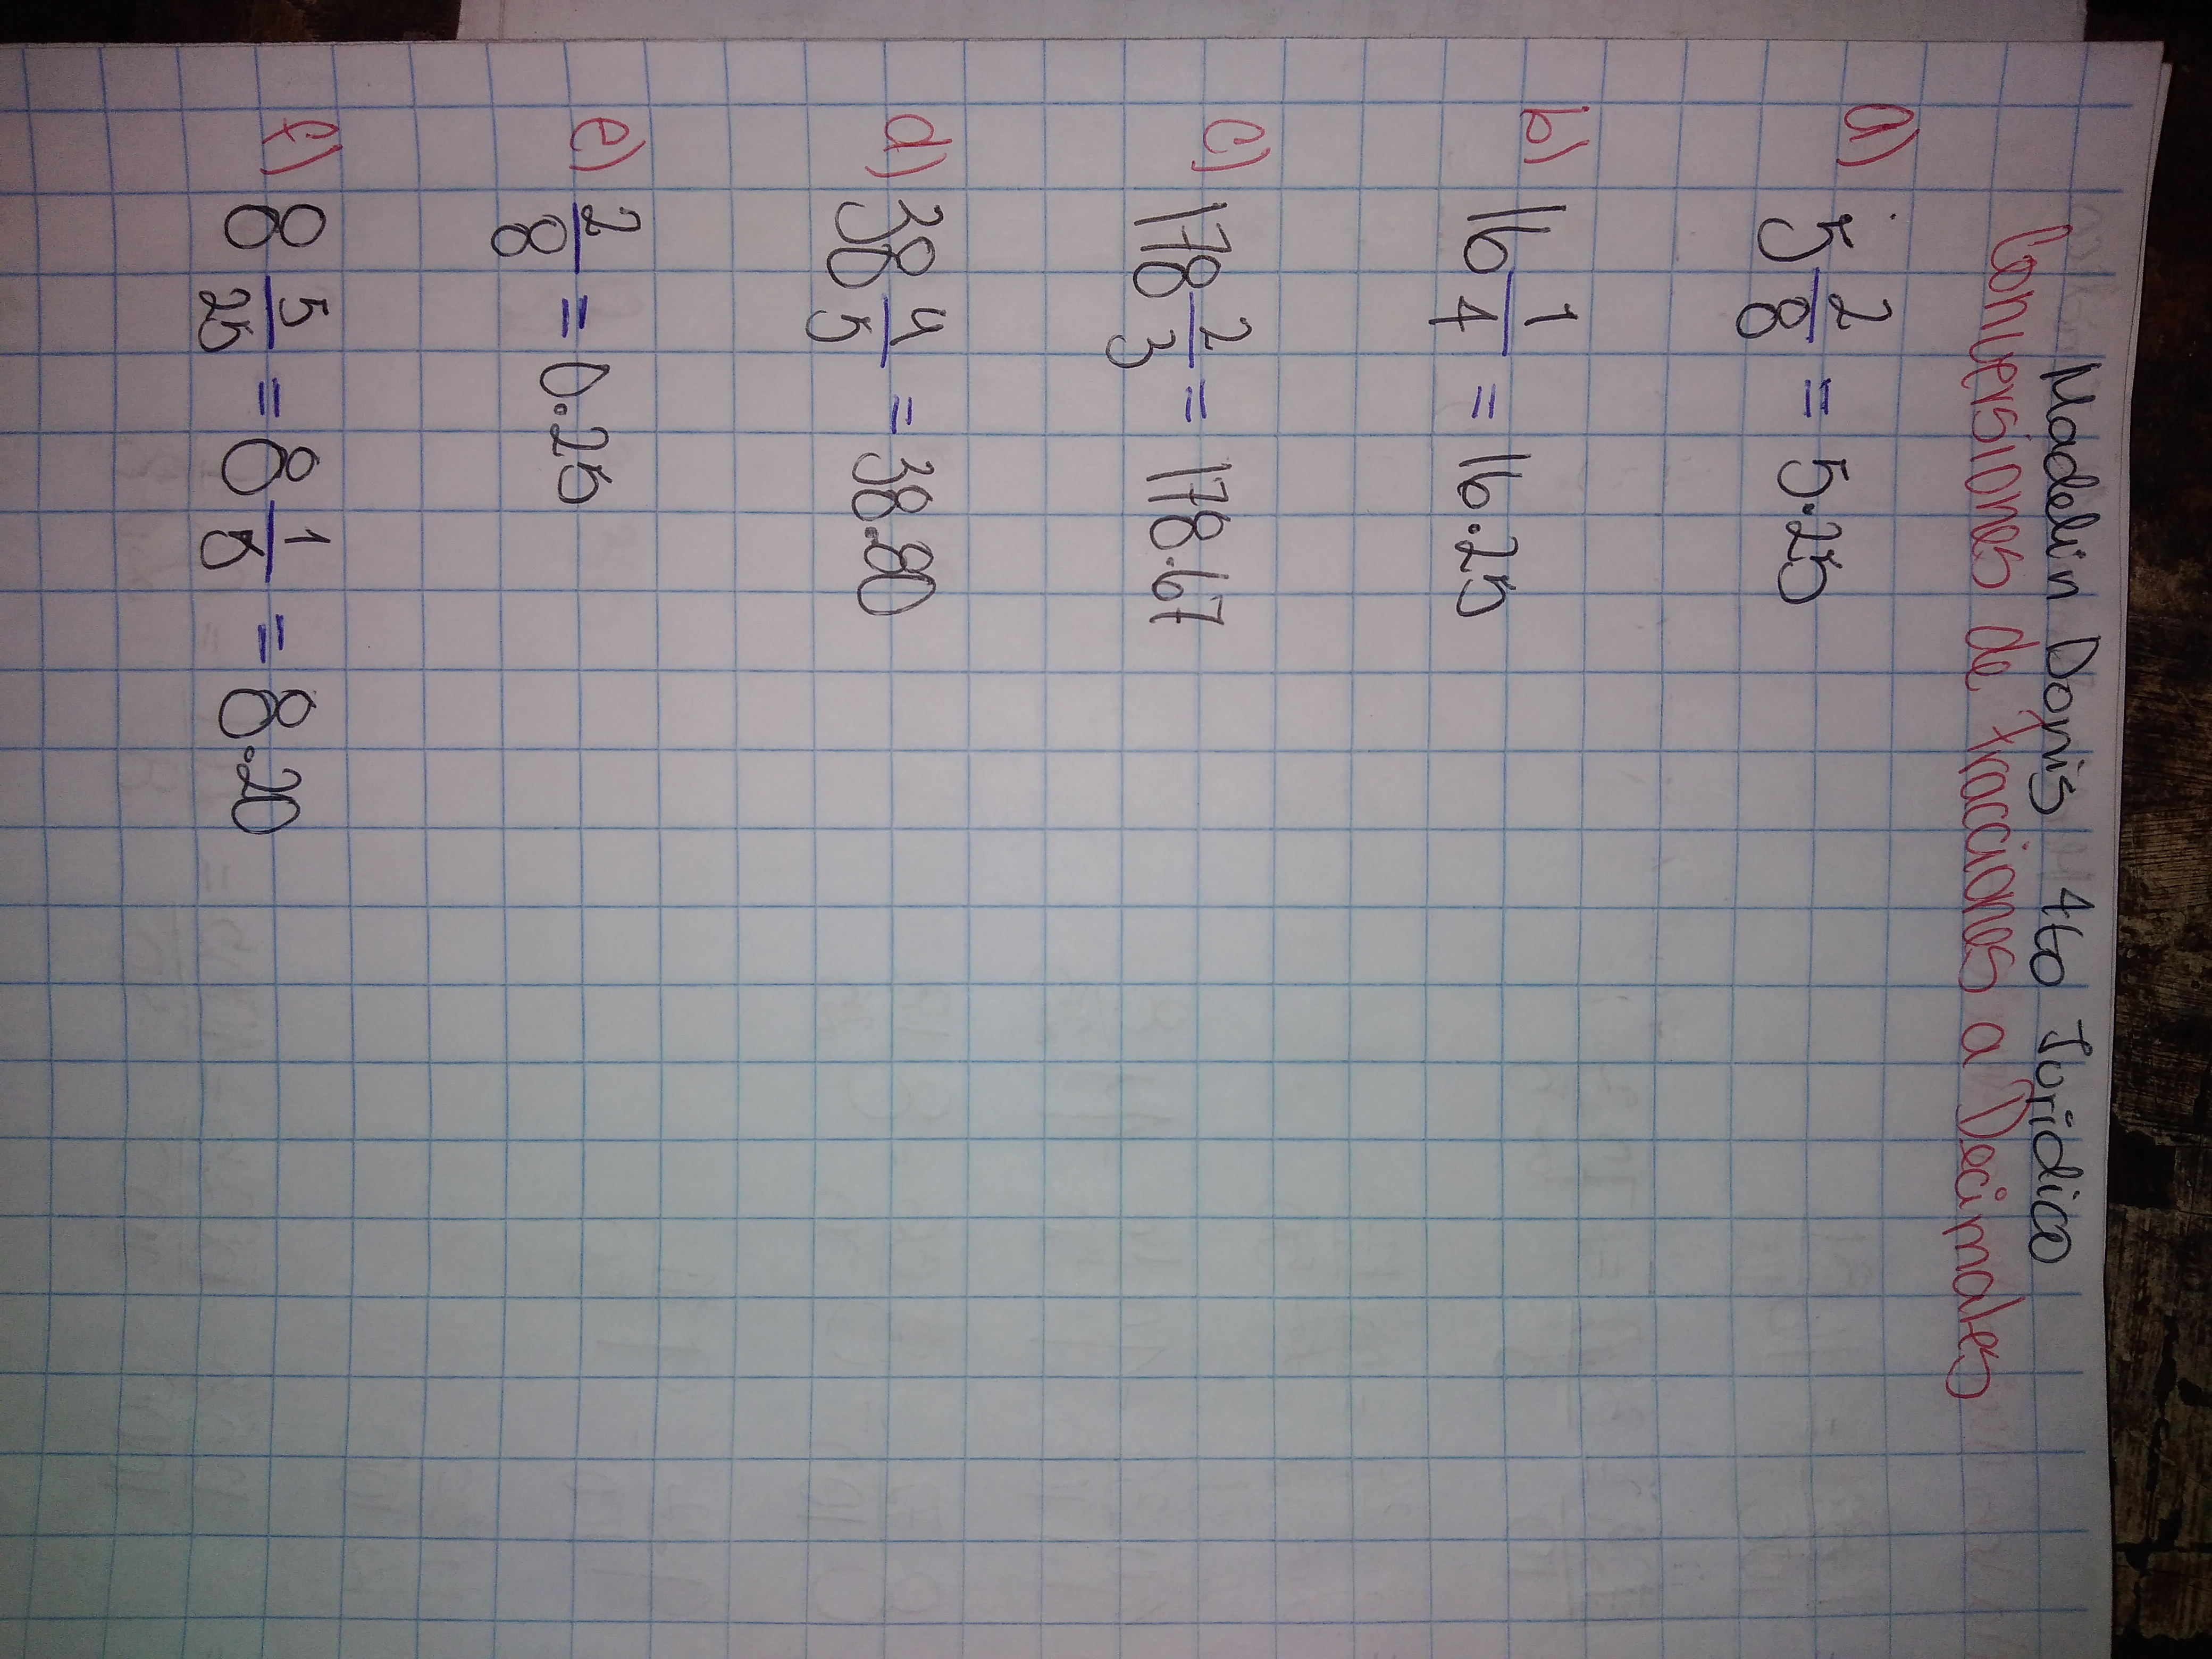 Madelin Donis 4to Jurídico
Conversiones de Fracciones a Decimales
a) 5 2/8 = 5.25
b) 16 1/4 = 16.25
c) 178 2/3 = 178.67
d) 38 4/5 = 38.80
e) 2/8 = 0.25
f) 8 5/25 = 8 1/5 = 8.20